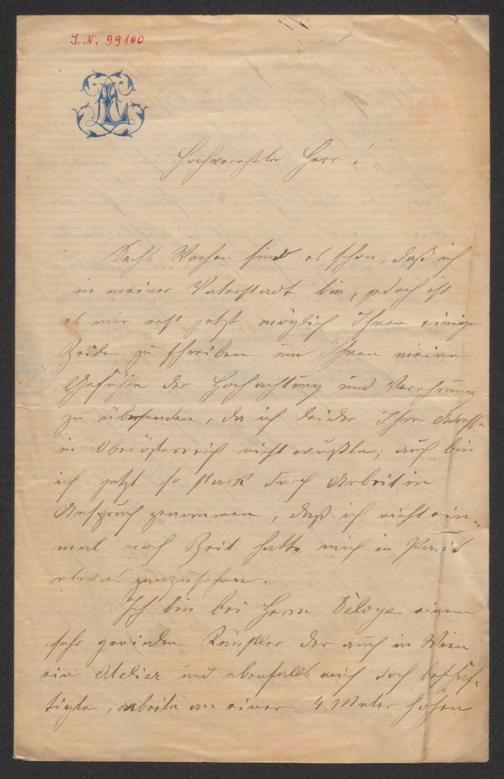 J. N. 99100
Hochverehrter Herr!
Sechs Wochen sind es schon, daß ich
in meiner Vaterstadt bin, jedoch ist
es mir erst jetzt möglich Ihnen einige
Zeilen zu schreiben um Ihnen meine
Gefühle der Hochachtung und Verehrung
zu übersenden, da ich leider Ihre Adresse
in Oberösterreich nicht wußte; auch bin
ich jetzt so stark durch Arbeit in
Anspruch genommen, daß ich nicht ein-
mal noch Zeit hatte mich in Paris
etwas umzusehen.
Ich bin bei Herrn Deloye einem
sehr Künstler der auch in Wien
ein Atelier und ebenfalls mich dort beschäf-
tigte, arbeite an einer 4 Meter hohen